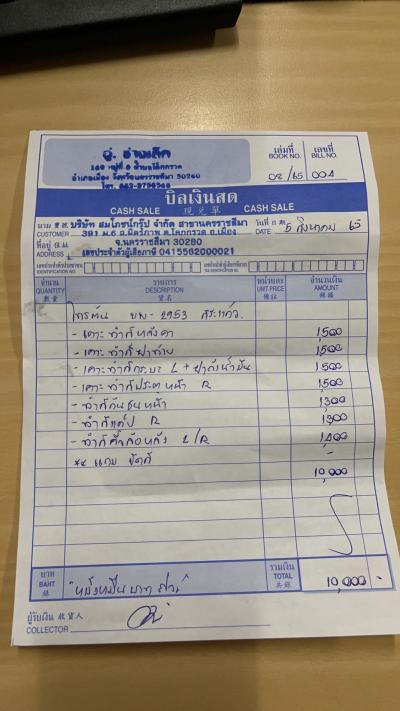 อู่ ช่างเล็ก
เล่มที่ เลขที่
BOOK NO. BILL NO.
02/65 004
บิลเงินสด
CASH SALE 現兌單 CASH SALE
นาม บริษัท สมโภชน์กรุ๊ป จำกัด สาขานครราชสีมา วันที่
CUSTOMER 391 ม.6 ถ.มิตรภาพ ต.โคกกรวด อ.เมือง DATE 5 สิงหาคม 65
ที่อยู่ จ.นครราชสีมา 30280
ADDRESS เลขประจำตัวผู้เสียภาษี 0415562000021
จำนวน รายการ หน่วยละ จำนวนเงิน
QUANTITY DESCRIPTION UNIT PRICE AMOUNT
數量 貨名
2953 สระแก้ว
- เคาะ ทำสี หลังคา 1,500
- เคาะ ทำสี ฝาท้าย 1,500
- เคาะ ทำสี กระบะ L + ฝาถังน้ำมัน 1,500
- เคาะ ทำสี ประตู หน้า R 1,500
- ทำสี กันชนหน้า 1,300
- ทำสี แก้ม R 1,300
- ทำสี หลัง L/R 1,400
** แถม ขัดสี -
10,000
บาท รวมเงิน
BAHT TOTAL
"หนึ่งหมื่นบาทถ้วน" 10,000 -
ผู้รับเงิน 收貨人
COLLECTOR